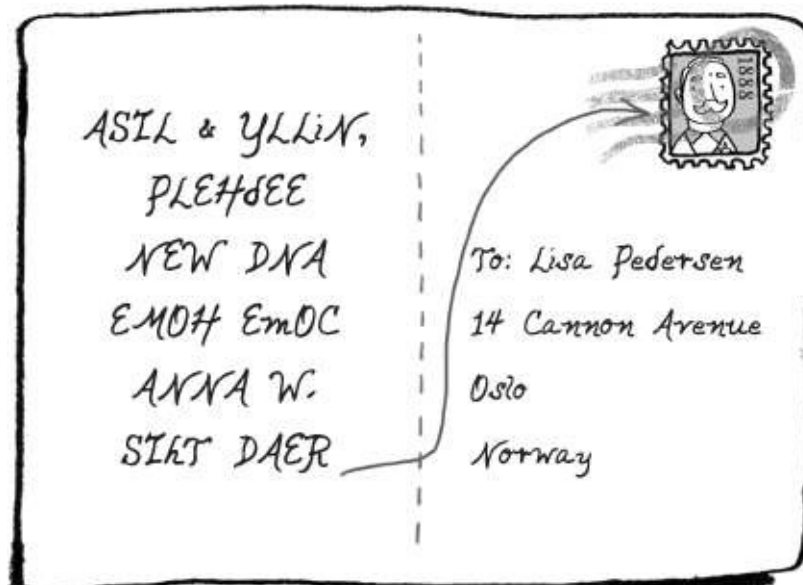 ASIL & YLLiN,
PLEHdEE
NEW DNA
EMOH EmOC
ANNA W.
SIhT DAER
1888
To: Lisa Pedersen
14 Cannon Avenue
Oslo
Norway